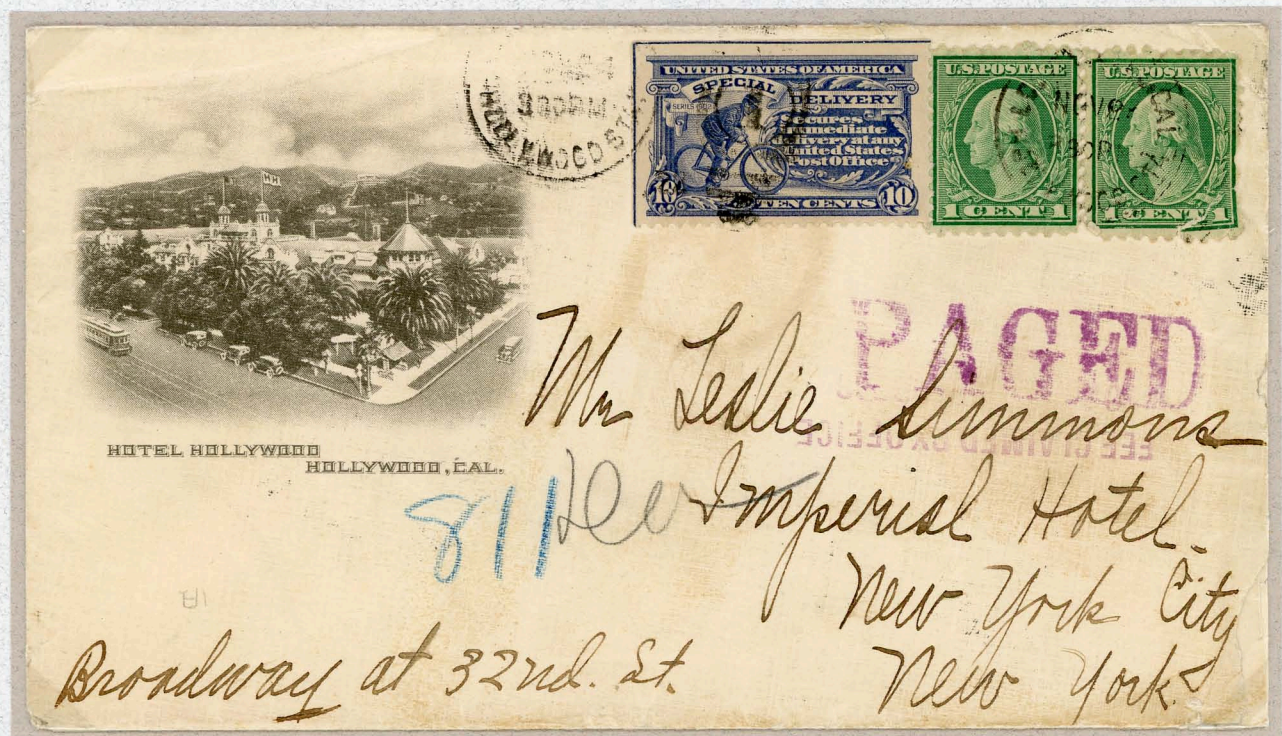 HOLLYWOOD ST
300PM
UNITED STATES OF AMERICA
SPECIAL
DELIVERY
Secures
immediate
delivery at any
United States
Post Office
10 TEN CENTS 10
U.S. POSTAGE
1 CENT 1
U.S. POSTAGE
1 CENT 1
HH
HOTEL HOLLYWOOD
HOLLYWOOD, CAL.
PAGED
FEE CLAIMED BY OFFICE
Mr Leslie Simmons
811
Imperial Hotel.
New York City
New York
Broadway at 32nd. St.